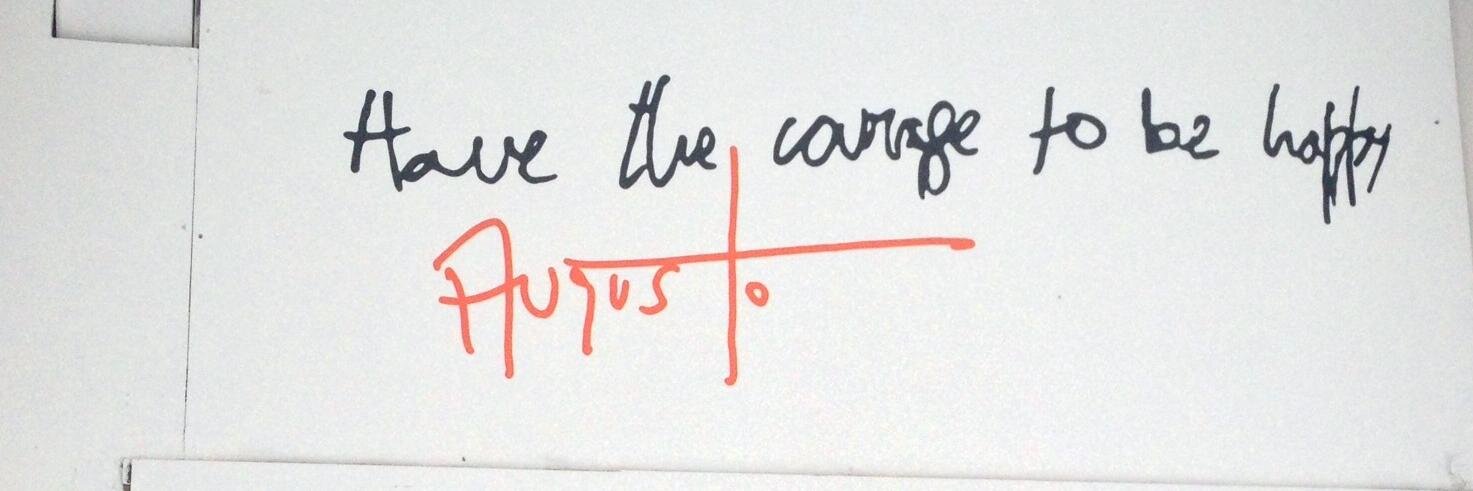 Have the courage to be happy
Augusto